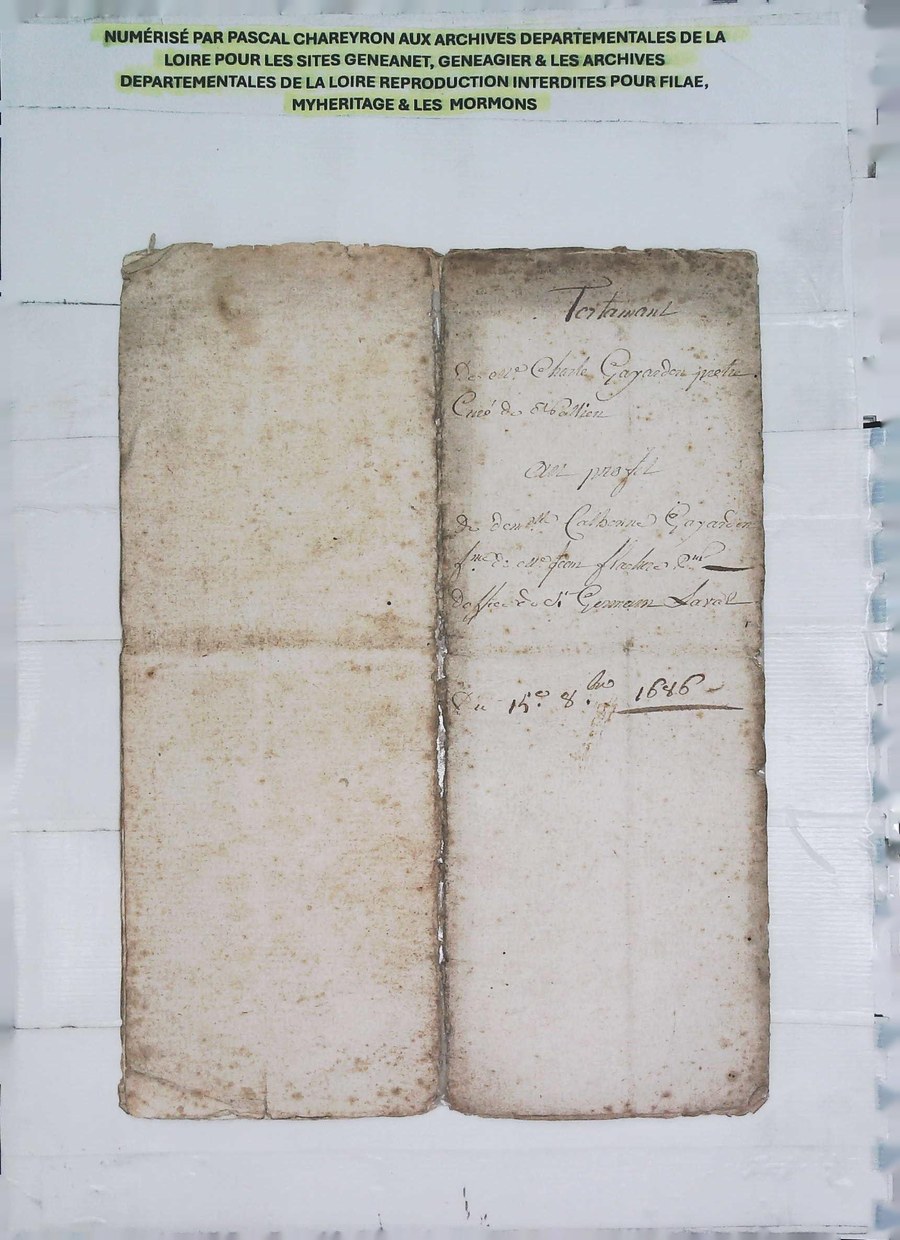 NUMÉRISÉ PAR PASCAL CHAREYRON AUX ARCHIVES DEPARTEMENTALES DE LA
LOIRE POUR LES SITES GENEANET, GENEAGIER & LES ARCHIVES
DEPARTEMENTALES DE LA LOIRE REPRODUCTION INTERDITES POUR FILAE,
MYHERITAGE & LES MORMONS
Testamant
De Mre Charle Gayardon pretre
Curé de
Au profit
de demlle Catherine Gayardon
fme de Mre Jean
de St Germain Laval
Du 15e 8bre 1686